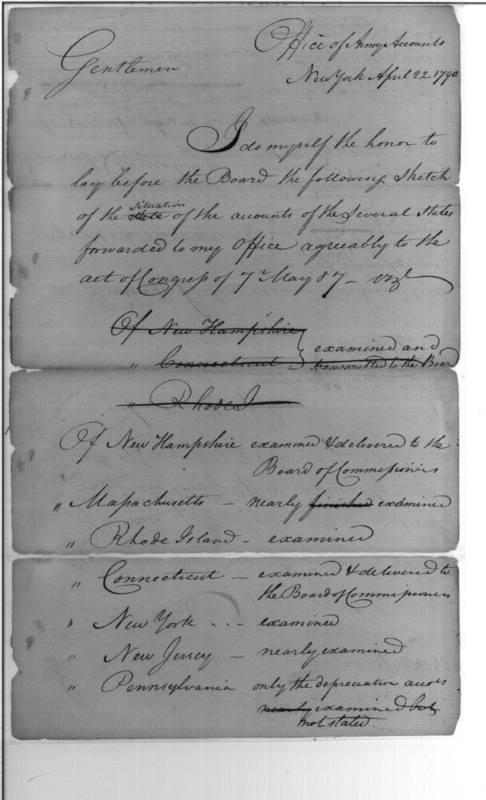 Office of Army Accounts
New York April 22. 1790
Gentlemen
I do myself the honor to
lay before the Board the following Sketch
of the state Situation of the accounts of the Several States
forwarded to my Office agreeably to the
act of Congress of 7th May 87 – vizt
Of New Hampshire
" Connecticut } examined and
transmitted to the Board
" Rhode I
Of New Hampshire examined & delivered to the
Board of Commissioners
" Massachusetts – nearly finished examined
" Rhode Island – examined
" Connecticut – examined & delivered to
the Board of Commissioners
" New York ... – examined
" New Jersey – nearly examined
" Pennsylvania only the depreciation accots
nearly examined but
not stated